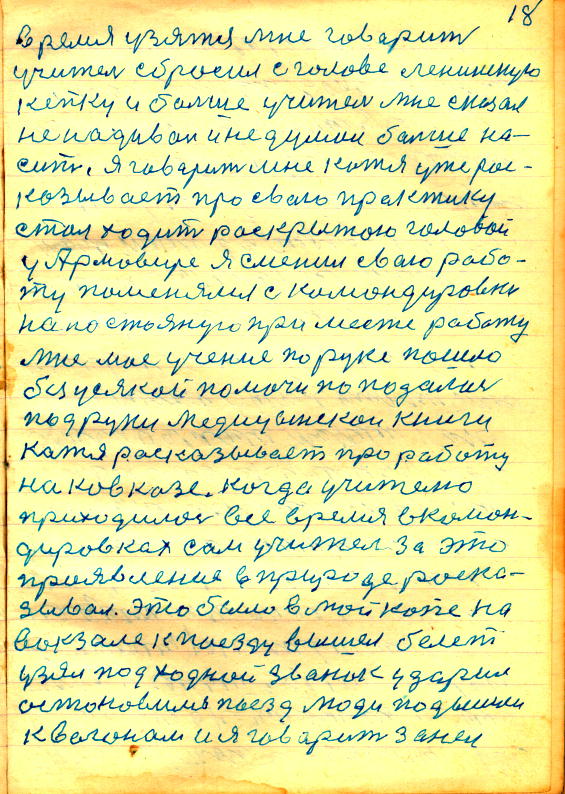 18
время узятя мне говарит
учител сбросил с голове лениннскую
кепку и болше учител мне сказал
не надивал и не думал болше на-
сить. я говарит мне катя уже рос-
казывает про сваю практику
стал ходит роскрытою головой
у Армовире я сменил сваю рабо-
ту поменялся с командировки
на постояную при месте работу
мне мое учение по руке пошло
без усякой помочи попадалис
под руки медицынской книги
катя расказывает про работу
на ковказе. когда учителю
приходилос все время в коман-
дировках сам учител за это
приявление в природе роска-
зывал. это было в мой коте на
вокзале к поезду вышел белет
узял подходной званок ударил
остоновилис поезд люди подышли
к вагонам и я говарит занел